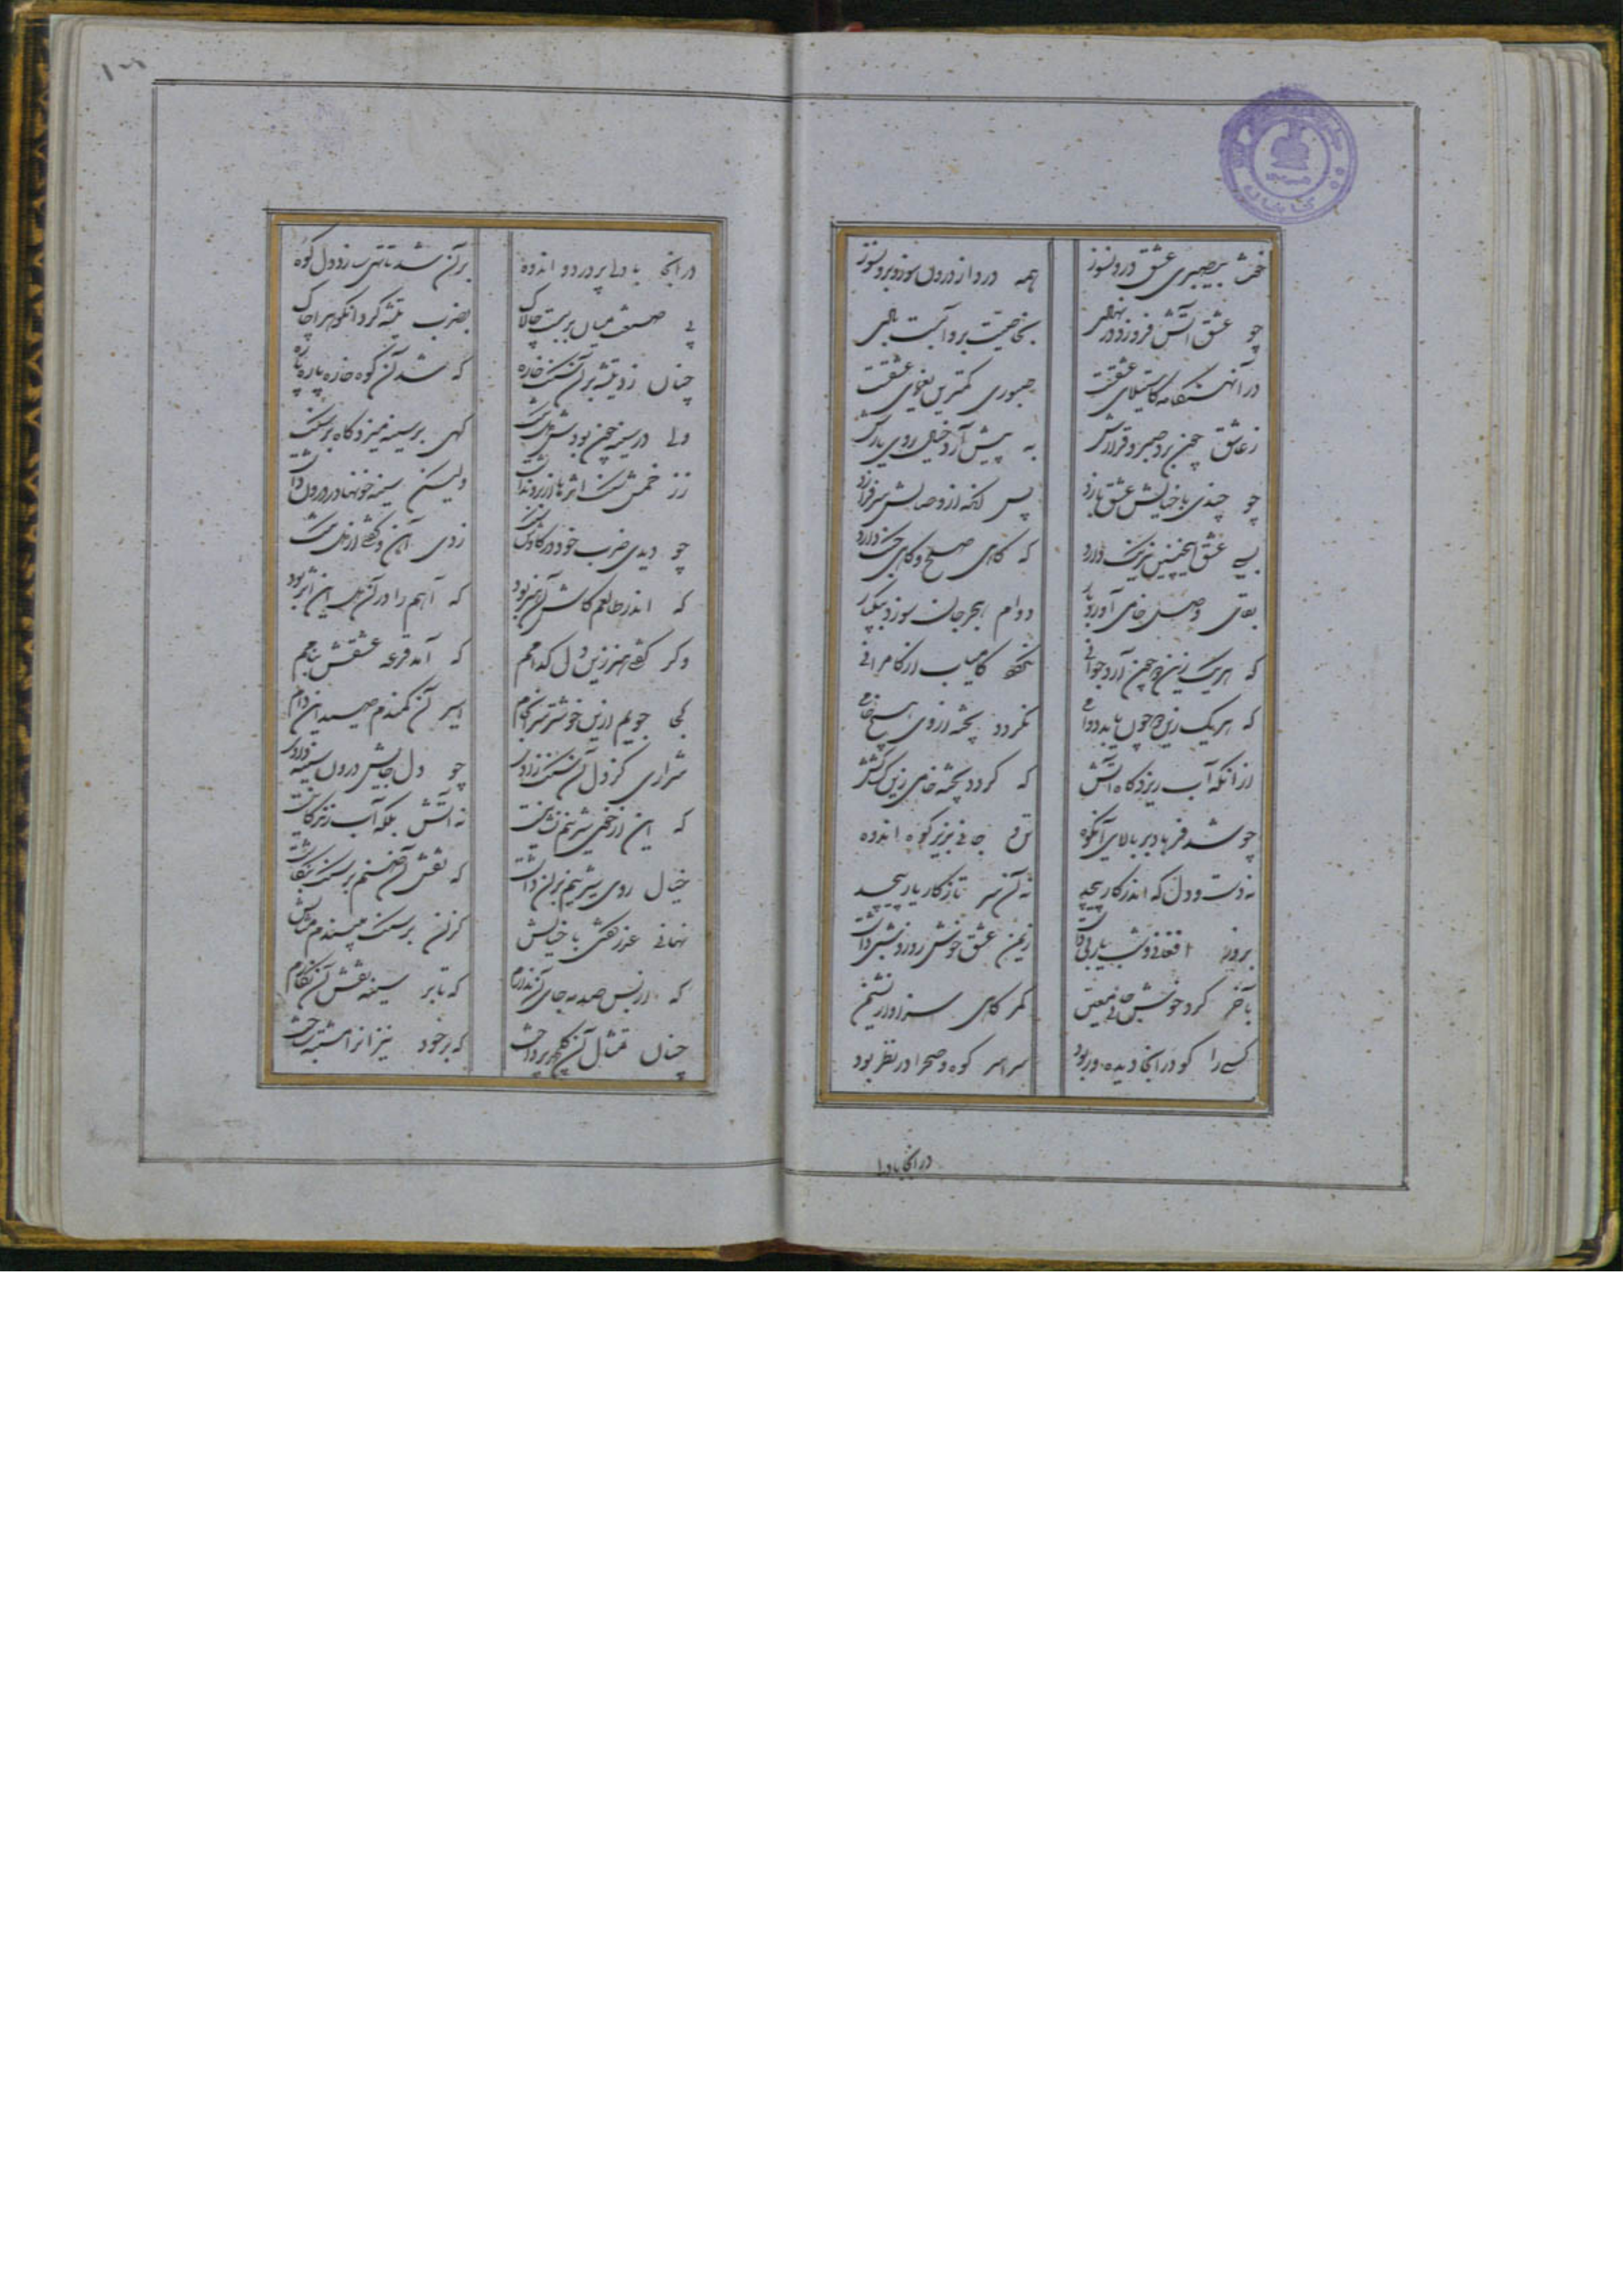 همه درد از درون سوزد برونسوز
چو عشق آتش فروزد در نهادی
بخاصیت برو آبست بادی
در آن هنگامه کاستیلای عشقست
صبوری کمترین یغمای عشقست
ز عاشق چون برد صبر و قرارش
به پیش آرد خیال روی یارش
چو چندی با خیالش عشق بازد
پس آنگه از وصالش سرفرازد
بسی عشق اینچنین نیرنگ دارد
که گاهی صلح و گاهی جنگ دارد
وصل خامی آورد بار
دوام هجر جان سوزد بیکبار
که هر یک زین دو چون آرد جوانی
کامیاب از کامرانی
که هر یک زین دو چون یابد دوامی
نگردد پخته از وی هیچ خامی
از آنکه آب ریزد گاه آتش
که گردد پخته خامی زین کشاکش
چو شد فرهاد بر بالای آن کوه
تو جانی بزیر کوه اندوه
نه دست و دل که اندر کار پیچد
نه آن سر تا ز کار یار پیچد
بروز افغان و شب یاربی داشت
ز یمن عشق خوش روز و شبی داشت
بآخر کرد خوش جائی معین
کمرگاهی سزاوار نشیمن
کسی را کو در آنجا دیده ور بود
سراسر کوه و صحرا در نظر بود
در آنجا با دلی
در آنجا با دلی پر درد و اندوه
بر آن شد تا تهی سازد دل کوه
پی صنعت میان بربست چالاک
بضرب تیشه کرد آن کوه را چاک
چنان زد تیشه بر آن سنگ خاره
که شد آن کوه خاره پاره پاره
ولی در سینه چون بودش دل تنگ
گهی بر سینه میزد گاه بر سنگ
ز زخمش سنگ اثرها از برون داشت
ولیکن سینه خونها در درون داشت
چو دیدی ضرب خود در کاوش سنگ
زدی آه و گفتی از دل تنگ
که اندر طالعم کاش آن هنر بود
که آهم را در آن دل این اثر بود
وگر گفتی هنر زین دل کدامم
که آمد قرعه عشقش بنامم
کجا جویم ازین خوشتر سرانجام
اسیر آن کمندم صید این دام
شراری کز دل آن سنگ زادی
چو دل جایش درون سینه دادی
که این از خوی شیرینم نشانیست
نه آتش بلکه آب زندگانیست
خیال روی شیرینم بر آن داشت
که نقش آن صنم بر سنگ بنگاشت
نهانی عذر گفتی با خیالش
کزان بر سنگ می‌بندم مثالش
که از بس صدمه جای آن ندارم
که تا بر سینه نقش آن نگارم
چنان تمثال آن گلچهر پرداخت
که بر خود نیز آنرا مشتبه ساخت